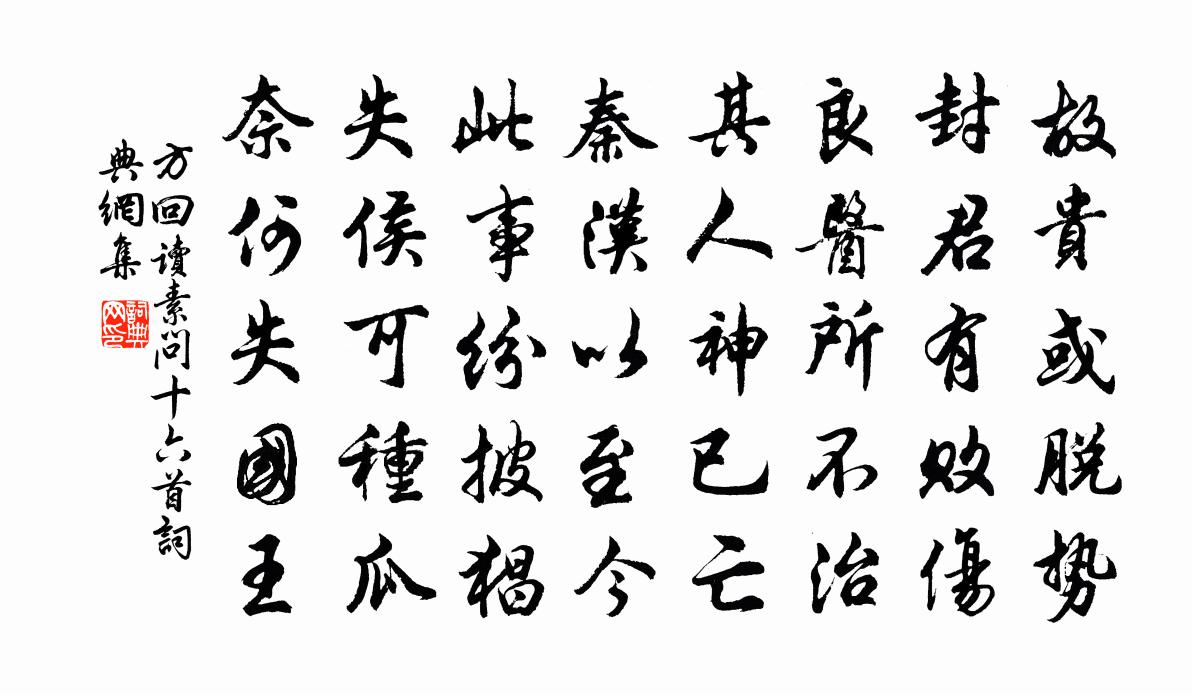 故貴或脱勢
封君有敗傷
良醫所不治
其人神已亡
秦漢以至今
此事紛披猖
失侯可種瓜
奈何失國王
方回讀素問十六首詞
典網集
詞典
网印